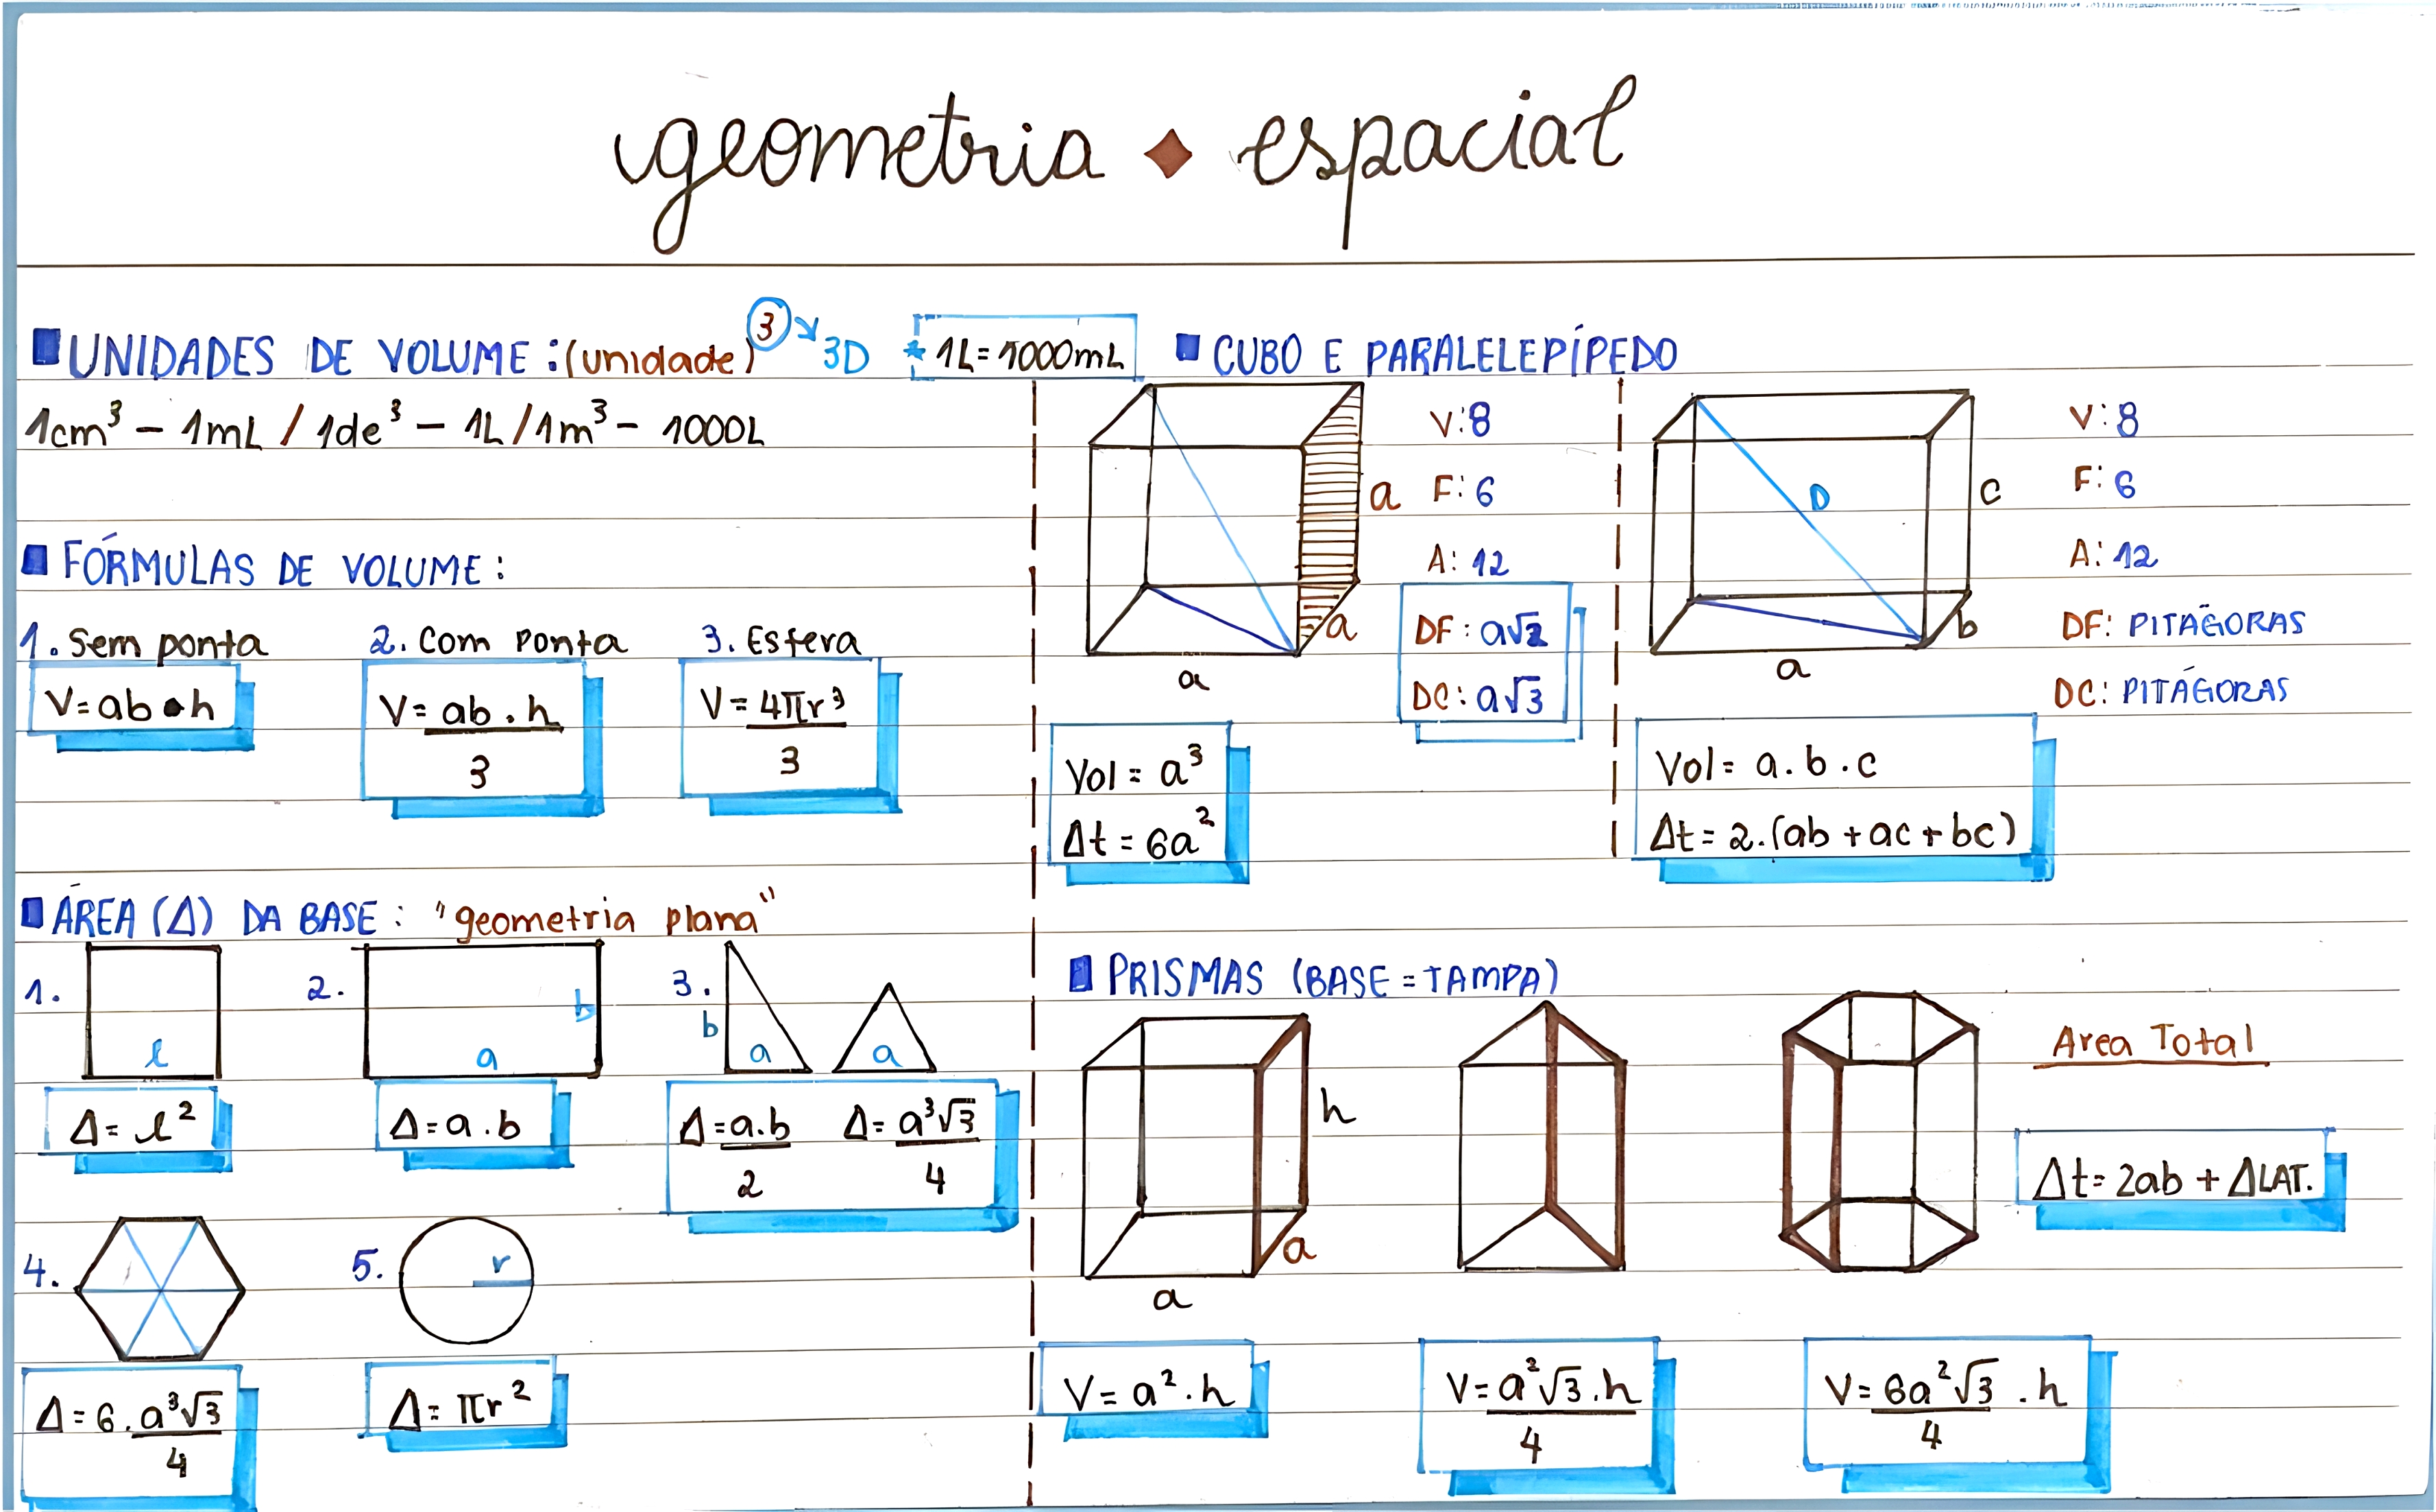 geometria ◆ espacial
UNIDADES DE VOLUME: (unidade)³ → 3D
* 1L = 1000mL
1cm³ - 1mL / 1de³ - 1L / 1m³ - 1000L
FÓRMULAS DE VOLUME:
1. Sem ponta
V = ab • h
2. Com ponta
V = ab . h / 3
3. Esfera
V = 4πr³ / 3
ÁREA (Δ) DA BASE: "geometria plana"
1.
l
Δ = l²
2.
b
a
Δ = a . b
3.
b
a
a
Δ = a.b / 2
Δ = a³√3 / 4
4.
Δ = 6 . a³√3 / 4
5.
r
Δ = πr²
CUBO E PARALELEPÍPEDO
V: 8
a
F: 6
A: 12
a
DF: a√2
a
DC: a√3
Vol = a³
Δt = 6a²
V: 8
D
c
F: 6
A: 12
b
DF: PITÁGORAS
a
DC: PITÁGORAS
Vol = a . b . c
Δt = 2.(ab + ac + bc)
PRISMAS (BASE = TAMPA)
h
a
a
V = a² . h
V = a²√3 . h / 4
V = 6a²√3 / 4 . h
Area Total
Δt = 2ab + ΔLAT.